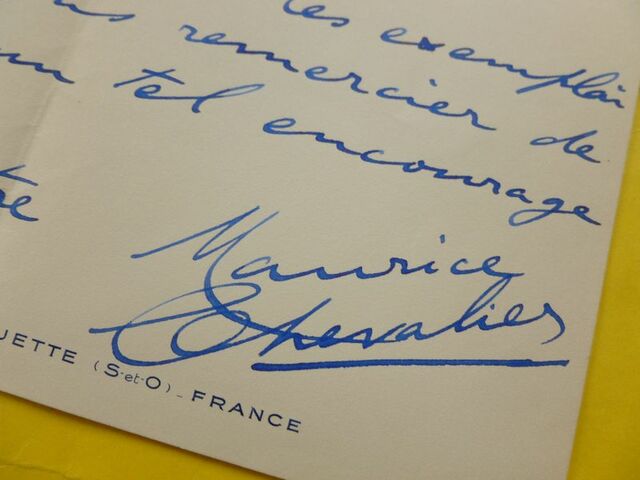 les exemplai
us remercier de
un tel encourage
tre
Maurice
Chevalier
UETTE (S-et-O)_FRANCE